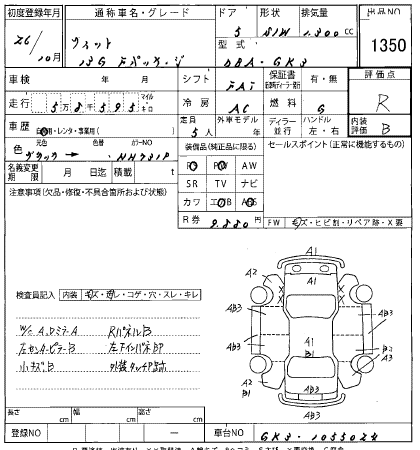 初度登録年月 通称車名・グレード ドア 形状 排気量 出品NO
26/10月 フィット 13G Fパッケージ 5 S/W 1,300cc 1350
型式 DBA-GK3
車検 年 月 シフト FAT 保証書 有・無 評価点
走行 58595 マイル キロ 冷房 AC 燃料 G R
車歴 自家用・レンタ・事業用( ) 定員 5人 外車モデル 年 ディーラー 並行 ハンドル 左・右 内装評価 B
色 元色 ブラック 色替 カラーNO NH731P 装備品(純正品に限る) セールスポイント(正常に機能するもの)
PS PW AW
名義変更期限 月 日迄 積載 t SR TV ナビ
注意事項(欠品・修復・不具合箇所および状態) カワ エアB ABS
R券 9,880円 FW キズ・ヒビ割・リペア跡・X要
検査員記入 内装 キズ・汚レ・コゲ・穴・スレ・キレ
W/C A,DミラーA RパネルB
左センターピラーB 左下インパネBP
小キズB 外装タッチP跡
A1
A2 A3
AB3 A1 AB3
A3 AB3
A1 B1 B2
A2 B1 A3
AB3
AB3
長さ cm 幅 cm 高さ cm
登録NO ー 車台NO GK3-1055024